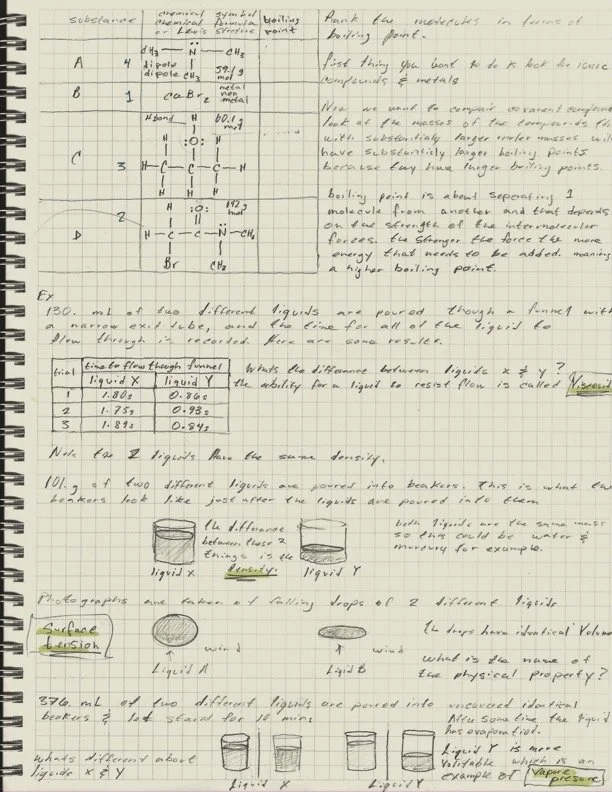 substance
chemical symbol
chemical formula
or Lewis structure
boiling
point
A 4
CH₃ — N̈ — CH₃
dipole
dipole CH₃ 59.1 g
mol
B 1
CaBr₂ metal
non
metal
C 3
H bond H 60.1 g
mol
H :O: H
H — C — C — C — H
H H H
D 2
H :O: 142 g
mol
H — C — C — N̈ — CH₃
Br CH₃
Rank the molecules in terms of
boiling point.
first thing you want to do is look for ionic
compounds & metals
Now we want to compair covarent compound
look at the masses of the compounds
with substantialy larger molar masses will
have substantialy larger boiling points
because they have larger boiling points.
boiling point is about seperating 1
molecule from another and that depends
on the strength of the intermolecular
forces. the stronger the force the more
energy that needs to be added. meaning
a higher boiling point.
Ex
130. mL of two different liquids are poured though a funnel with
a narrow exit tube, and the time for all of the liquid to
flow through is recorded. Here are some results.
trial time to flow though funnel
liquid X liquid Y
1 1.80s 0.86s
2 1.75s 0.93s
3 1.89s 0.84s
Whats the differance between liquids x & y?
the ability for a liquid to resist flow is called
Note the 2 liquids have the same density.
101. g of two different liquids are poured into beakers. This is what the
beakers look like just after the liquids are poured into them
the differance
between these 2
things is the
density.
liquid X
liquid Y
both liquids are the same mass
so this could be water &
mercury for example.
Photographs are taken of falling drops of 2 different liquids
Surface
tension
wind
Liquid A
wind
Liqid B
the drops have identical Volume
what is the name of
the physical property?
376. mL of two different liquids are poured into uncovered identical
beakers & let stand for 10 min.
After some time the liquid
has evaporation.
Liquid Y is more
which is an
example of Vapore
presure
whats different about
liquids x & y
Liquid X
Liquid Y